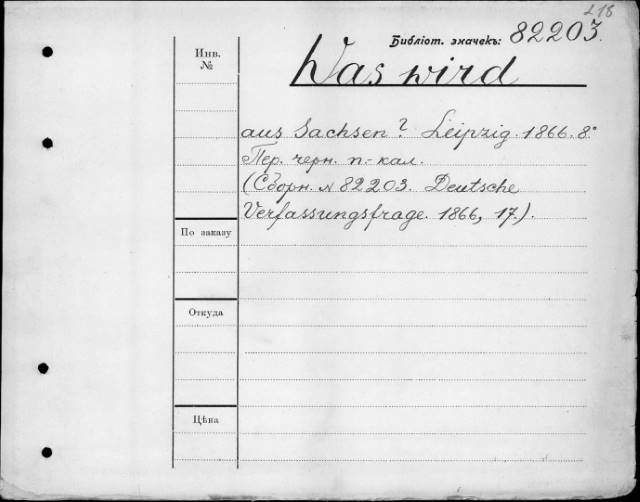 218
Библіот. значекъ: 82203.
Инв.
№
Was wird
aus Sachsen? Leipzig. 1866. 8°.
Пер. черн. п.-кал.
(Сборн. № 82203. Deutsche
Verfassungsfrage. 1866, 17.).
По заказу
Откуда
Цѣна